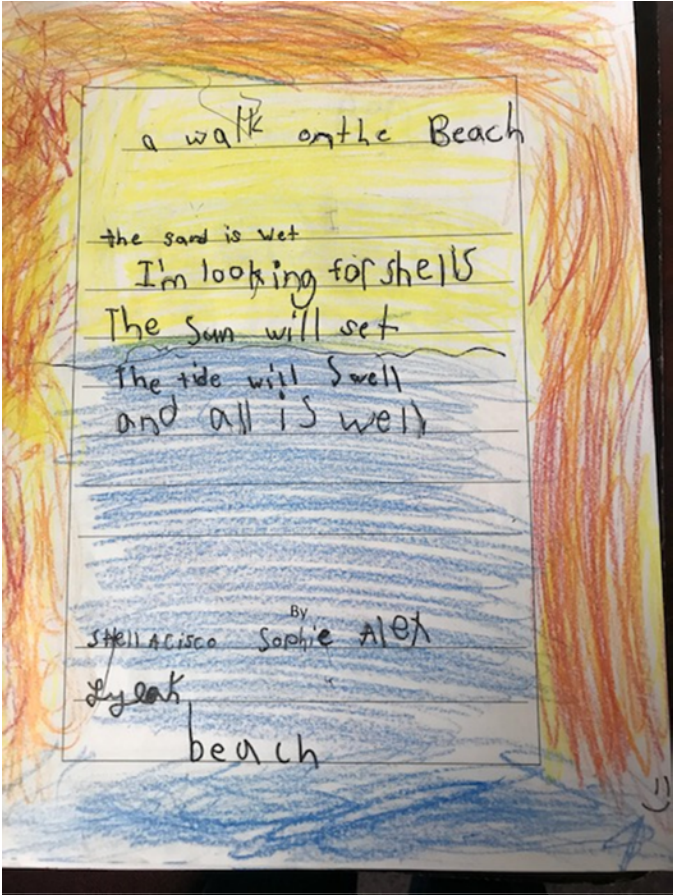 a walk on the Beach
the sand is wet
I'm looking for shells
The Sun will set
The tide will Swell
and all is well
By
Sophie Alex
beach
:)